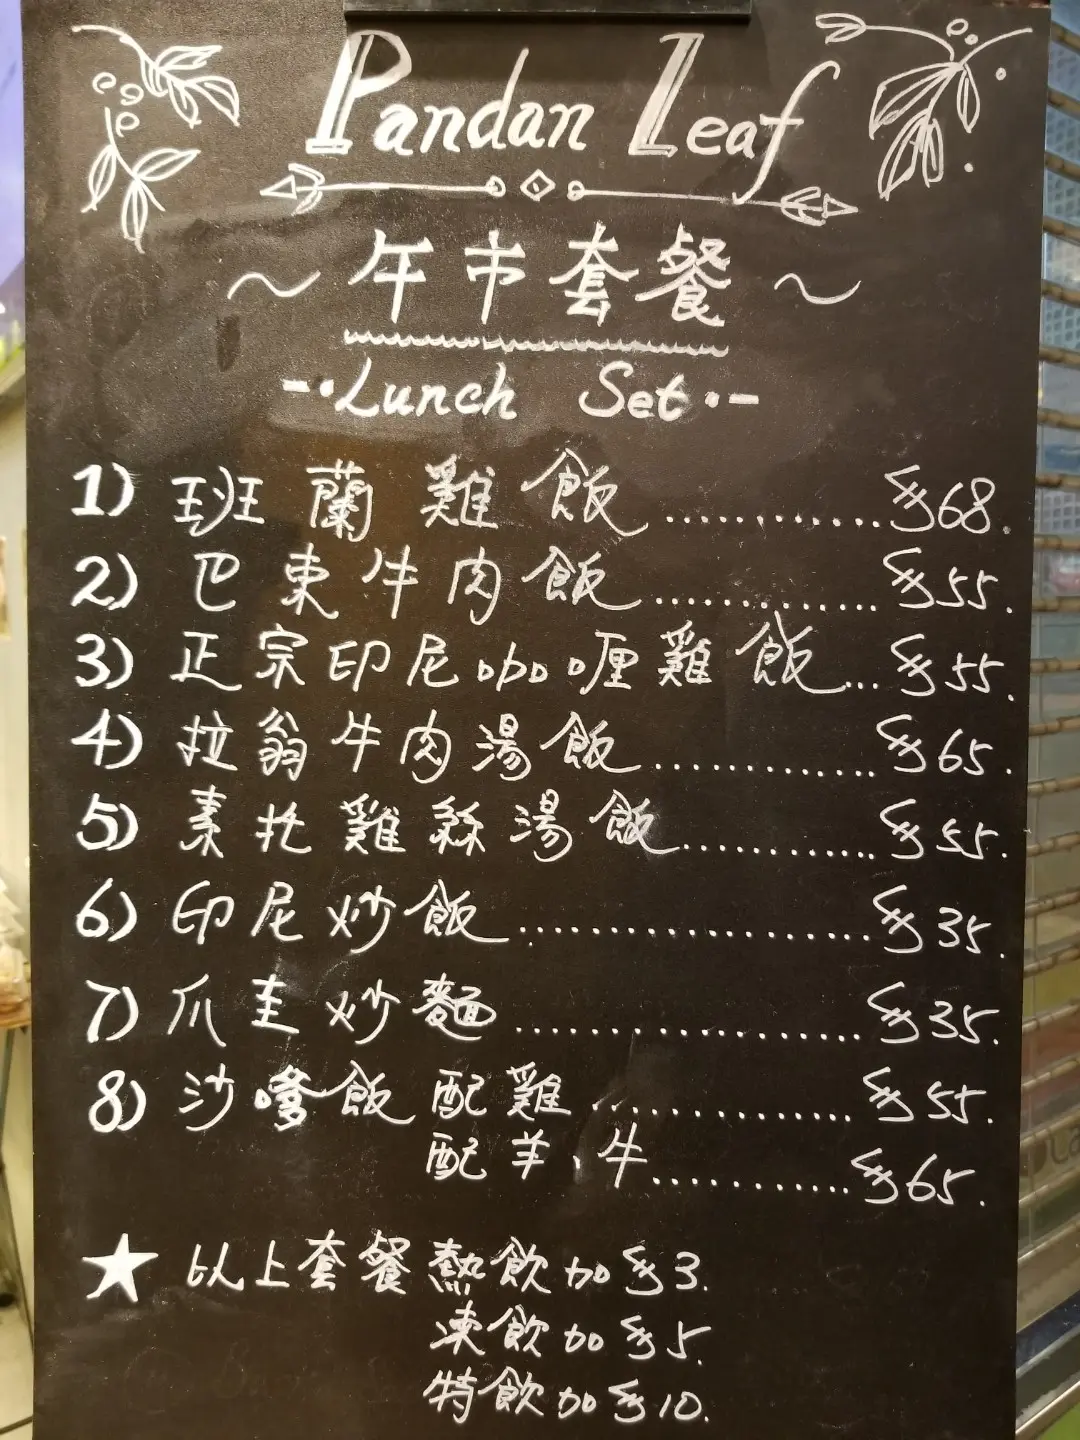 Pandan Leaf
～午市套餐～
-·Lunch Set·-
1) 班蘭雞飯............$68.
2) 巴東牛肉飯............$55.
3) 正宗印尼咖喱雞飯...$55.
4) 拉翁牛肉湯飯............$65.
5) 素托雞絲湯飯............$55.
6) 印尼炒飯...................$35.
7) 爪圭炒麵...................$35.
8) 沙嗲飯 配雞..............$55.
配羊、牛...........$65.
★ 以上套餐熱飲加$3.
凍飲加$5.
特飲加$10.